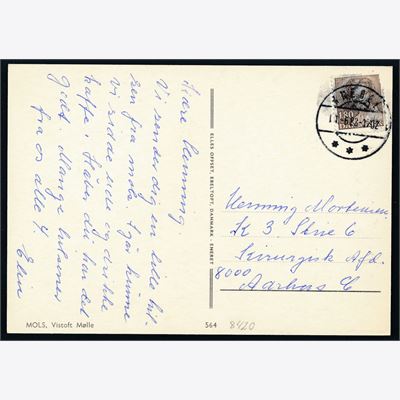 Kære Henning
Vi sender dig en lille hil-
sen fra Mols. I går kunne
vi sidde ude og drikke
kaffe. Håber du har det
godt. Mange hilsener
fra os alle 4
Elin
MOLS, Vistoft Mølle
ELLES OFFSET, EBELTOFT, DANMARK - ENERET
564
8420
Henning Mortensen
K 3 Stue 6
Kirurgisk Afd.
8000
Aarhus C